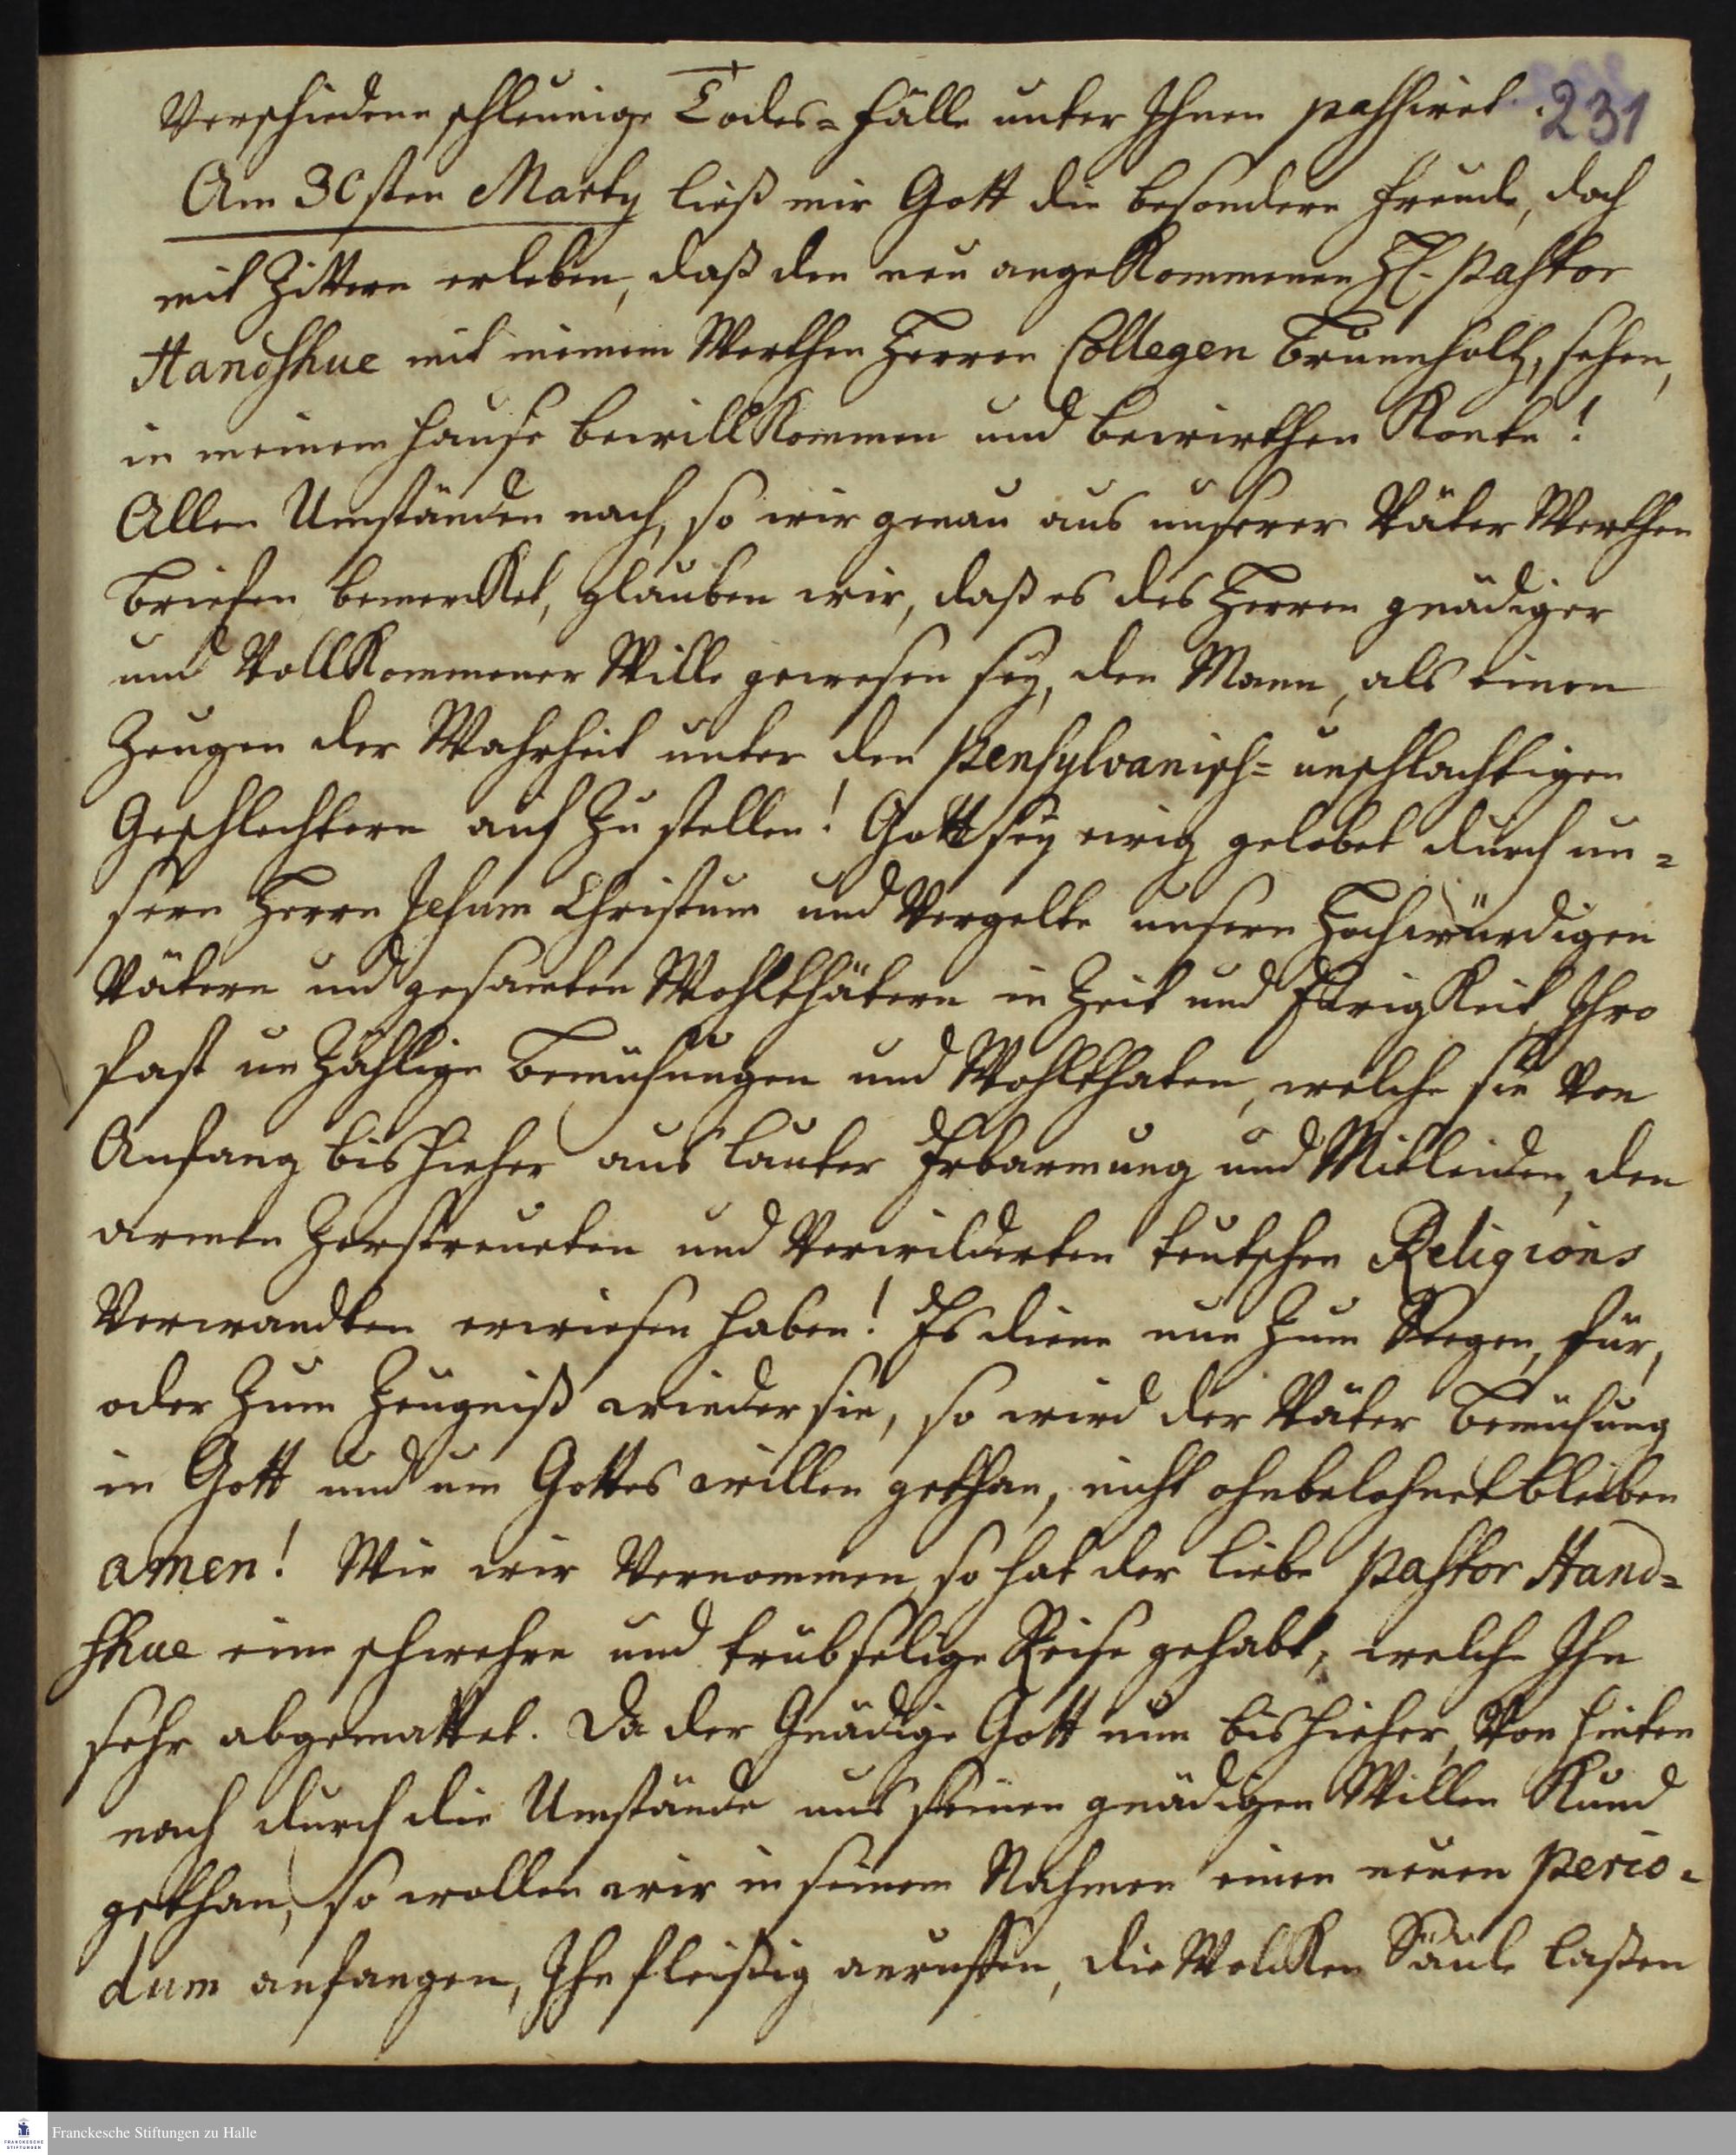 Verschiedene schleunige Todes= fälle unter Ihnen passiret. 231
Am 30sten Marty ließ mir Gott die besondere freude, doch
mit Zittern erleben, daß den neu angekommenen H. Pastor
Handshue mit meinem Werthen Herren Collegen Brunnholtz, sehen,
in meinem Hause bewillkommen und bewirthen konte!
Allen Umständen nach, so wir genau aus unserer Väter Werthen
briefen bemercket, glauben wir, daß es des Herren gnädiger
und Vollkommener Wille gewesen sey, den Mann, als einen
Zeugen der Wahrheit unter den Pensylvanisch= unschlachtigen
Geschlechtern auf Zu stellen! Gott sey ewig gelobet durch un=
sern Herrn Jesum Christum und Vergelte unsern Hochwürdigen
Vätern und gesamten Wohlthätern in Zeit und Ewigkeit Ihro
fast un Zählige bemühungen und Wohlthaten, welche sie Von
Anfang bis hieher aus lauter Erbarmung und Mitleiden, den
armen Zerstreueten und Verwilderten teutschen Religions
Verwandten erwiesen haben! Es diene nun Zum Seegen, für,
oder Zum Zeugniß wieder sie, so wird der Väter bemühung
in Gott und um Gottes willen gethan, nicht ohnbelohnet bleiben
amen! Wie wir Vernommen, so hat der liebe Pastor Hand=
shue eine schwehre und trübselige Reise gehabt, welche Ihn
sehr abgemattet. Da der Gnädige Gott nun bis hieher, Von hinten
nach durch die Umstände uns seinen gnädigen Willen kund
gethan, so wollen wir in seinem Nahmen einen neuen Perio=
dum anfangen, Ihn fleißig anruffen, die Wolcken Säule laßen
Franckesche Stiftungen zu Halle
FRANCKESCHE
STIFTUNGEN